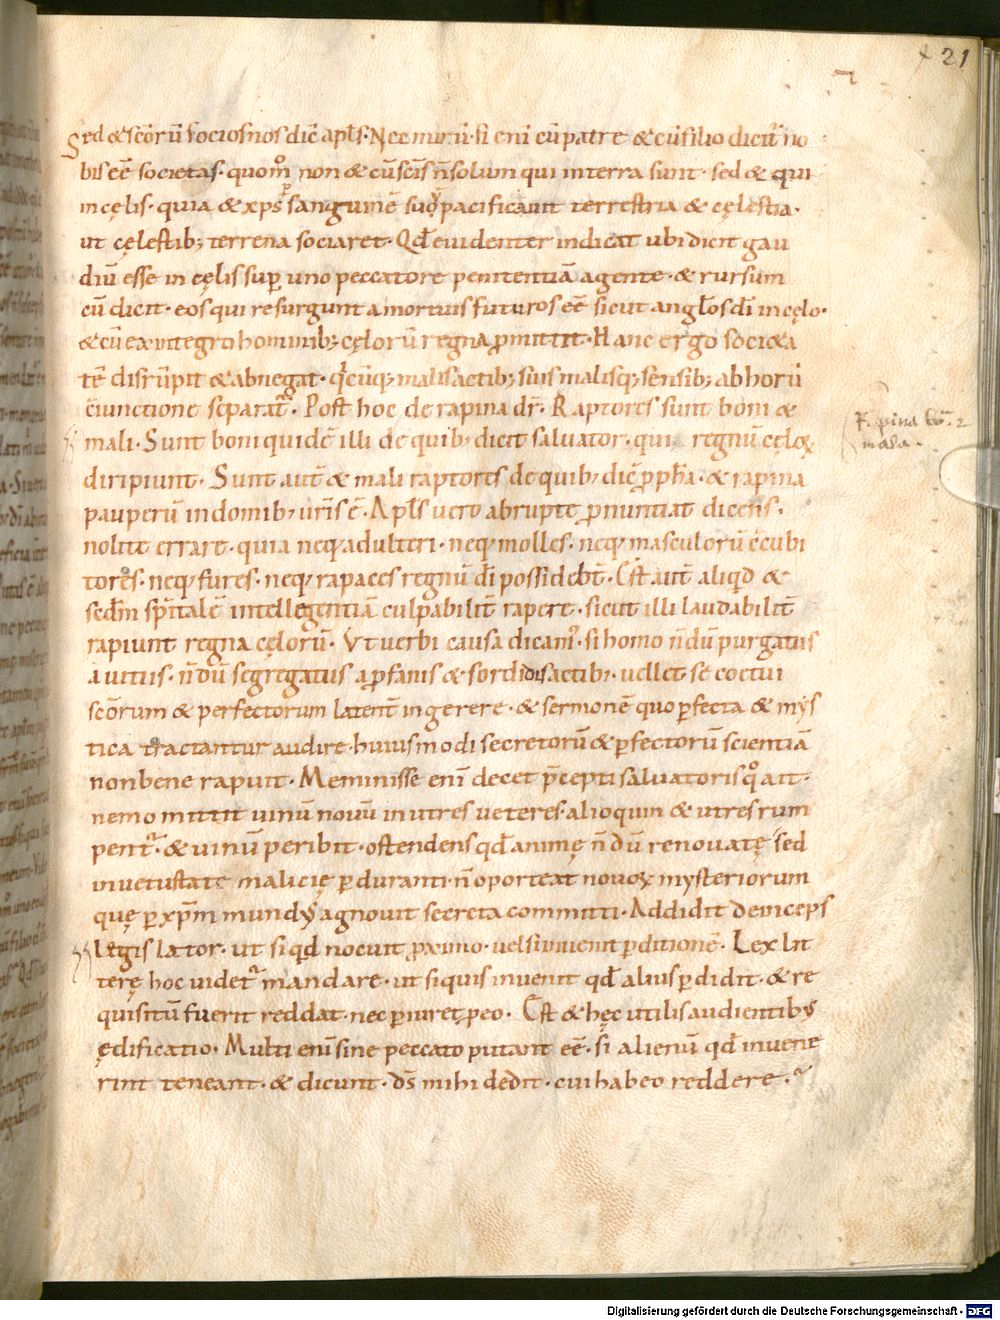 21
Sed & scōrū socios nos dic̄ apl̄s. Nec mirū. si enī cū patre & cū filio dicit̄ no
bis eē societas. quom̊ non & cū sc̄is n̄ solum qui in terra sunt. sed & qui
in cęlis. quia & xp̄s p̱ sanguinē suū pacificauit terrestria & cęlestia.
ut cęlestib; terrena sociaret. Qđ euidenter indicat ubi dicit gau
diū esse in cęlis sup̱ uno peccatore penitentiā agente. & rursum
cū dicit. eos qui resurgunt a mortuis futuros eē sicut angl̄os dī in cęlo.
& cū ex integro hominib; cęlorū regna ꝓmittit. Hanc ergo soci&a
tē disrūpit & abnegat. q̇cūq; malis actib; suis malisq; sensib; ab horū
c̄iunctione separat̄. Post hoc de rapina dr̄. Raptores sunt boni &
mali. Sunt boni quidē illi de quib; dicit saluator. qui regnū cęloꝝ
diripiunt. Sunt aut̄ & mali raptores de quib; dic̄ ꝓph̄a. & rapina
pauperū in domib; ur̄is ē. Apl̄s uero abrupte ꝓnuntiat dicens.
nolite errare. quia neq; adulteri. neq; molles. neq; masculorū c̄cubi
tores. neq; fures. neq; rapaces regnū dī possidebt̄. Est aut̄ aliqđ &
sedm̄ sp̄italē intellegentiā culpabilit̄ rapere. sicut illi laudabilit̄
rapiunt regna cęlorū. Vt uerbi causa dicam᾽. si homo n̄dū purgatus
a uitiis. n̄dū segregatus a ꝓfanis & sordidis actib; uellet se coetui
scōrum & perfectorum latent̄ ingerere. & sermonē quo ꝑfecta & mys
tica tractantur audire. huiusmodi secretorū & ꝑfectorū scientiā
non bene rapuit. Meminisse enī decet p̄cepti saluatoris q̊ ait.
nemo mittit uinū nouū in utres ueteres. alioquin & utres rum
pent̄. & uinū peribit. ostendens qđ animę n̄dū renouatę sed
in uetustate malicię ꝑduranti. n̄ oporteat nouoꝝ mysteriorum
quę ꝑ xp̄m mundus agnouit secreta committi. Addidit deinceps
legislator. ut siqđ nocuit ꝓximo. uel si inuenit ꝑditionē. Lex lit
terę hoc uidet̄ mandare. ut siquis inuenit qđ alius ꝑdidit. & re
quisitū fuerit reddat. nec ꝑiuret ꝓ eo. Est & hęc utilis audientib;
ędificatio. Multi enī sine peccato putant eē. si alienū qđ inuene
rint teneant. & dicunt. ds̄ mihi dedit. cui habeo reddere.
mala.
Digitalisierung gefördert durch die Deutsche Forschungsgemeinschaft - DFG